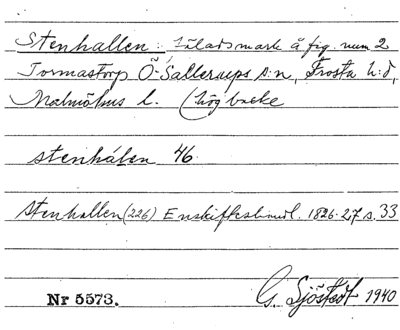 Stenhallen: Fäladsmark å fig. num 2
Tormastorp Ö. Sallerups s:n, Frosta h:d,
Malmöhus l. (hög backe
stenhálen 46.
Stenhallen (226) Enskifteshandl. 1826-27 s. 33
Nr 5573. G. Sjöstedt 1940